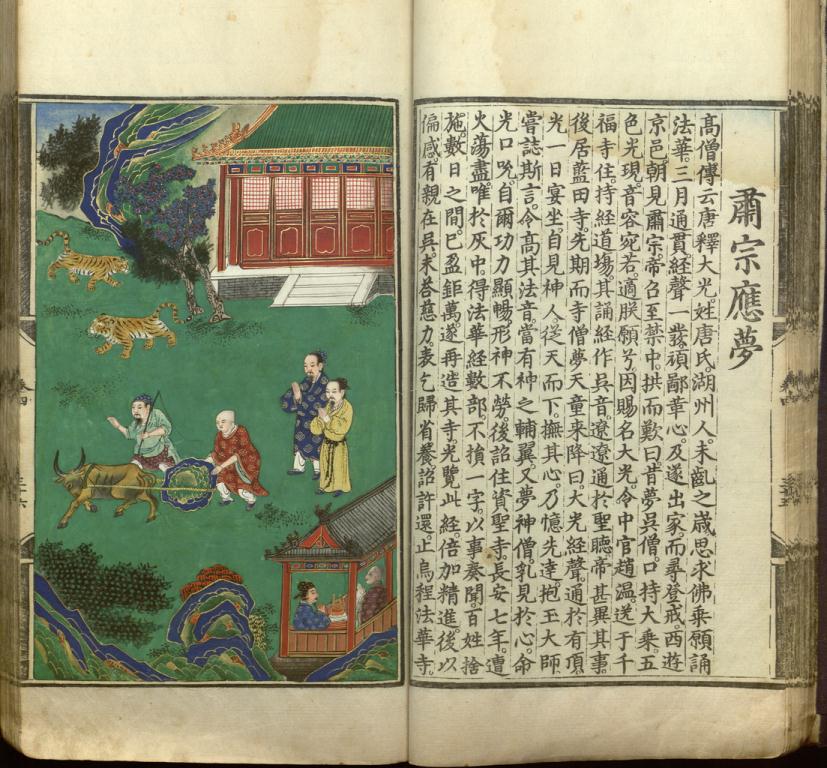 肅宗應夢
高僧傳云。唐釋大光。姓唐氏。湖州人。未齔之歲。思求佛乘。願誦
法華。三月通貫。經聲一發。頑鄙革心。及遂出家。而尋登戒。西遊
京邑。朝見肅宗。帝召至禁中。拱而歎曰。昔夢吳僧。口持大乘。五
色光現。音容宛若。適朕願兮。因賜名大光。令中官趙溫送于千
福寺住。持經道場。其誦經作吳音。遼遼通於聖聽。帝甚異其事。
後居藍田寺。先期而寺僧夢天童來降曰。大光經聲。通於有頂。
光一日宴坐。自見神人。從天而下。撫其心。乃憶先達抱玉大師。
嘗誌斯言。令高其法音。當有神之輔翼。又夢神僧。乳見於心。命
光口吮。自爾功力顯暢。形神不勞。後詔住資聖寺。長安七年。遭
火蕩盡。唯於灰中。得法華經數部。不損一字。以事奏聞。百姓捨
施。數日之間。已盈鉅萬。遂再造其寺。光覽此經。倍加精進。後以
偏感。有親在吳。未荅慈力。表乞歸省養。詔許還。止烏程法華寺。